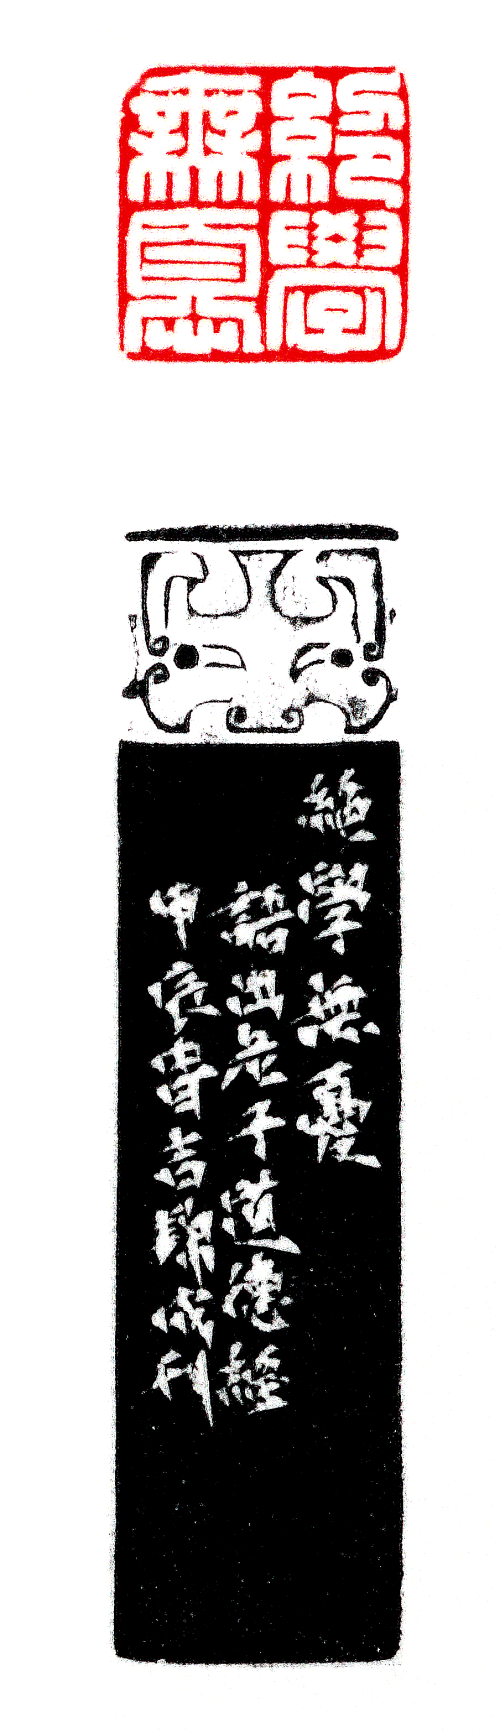 絕學
無憂
絕學無憂
語出老子道德經
甲辰吉刊